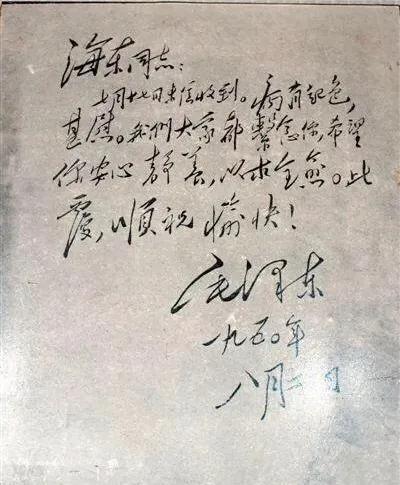 海东同志：
七月十七日来信收到。病有起色，
甚慰。我们大家都繫念你，希望
你安心静养，以求全愈。此
覆，顺祝愉快！
毛泽东
一九五〇年
八月二日